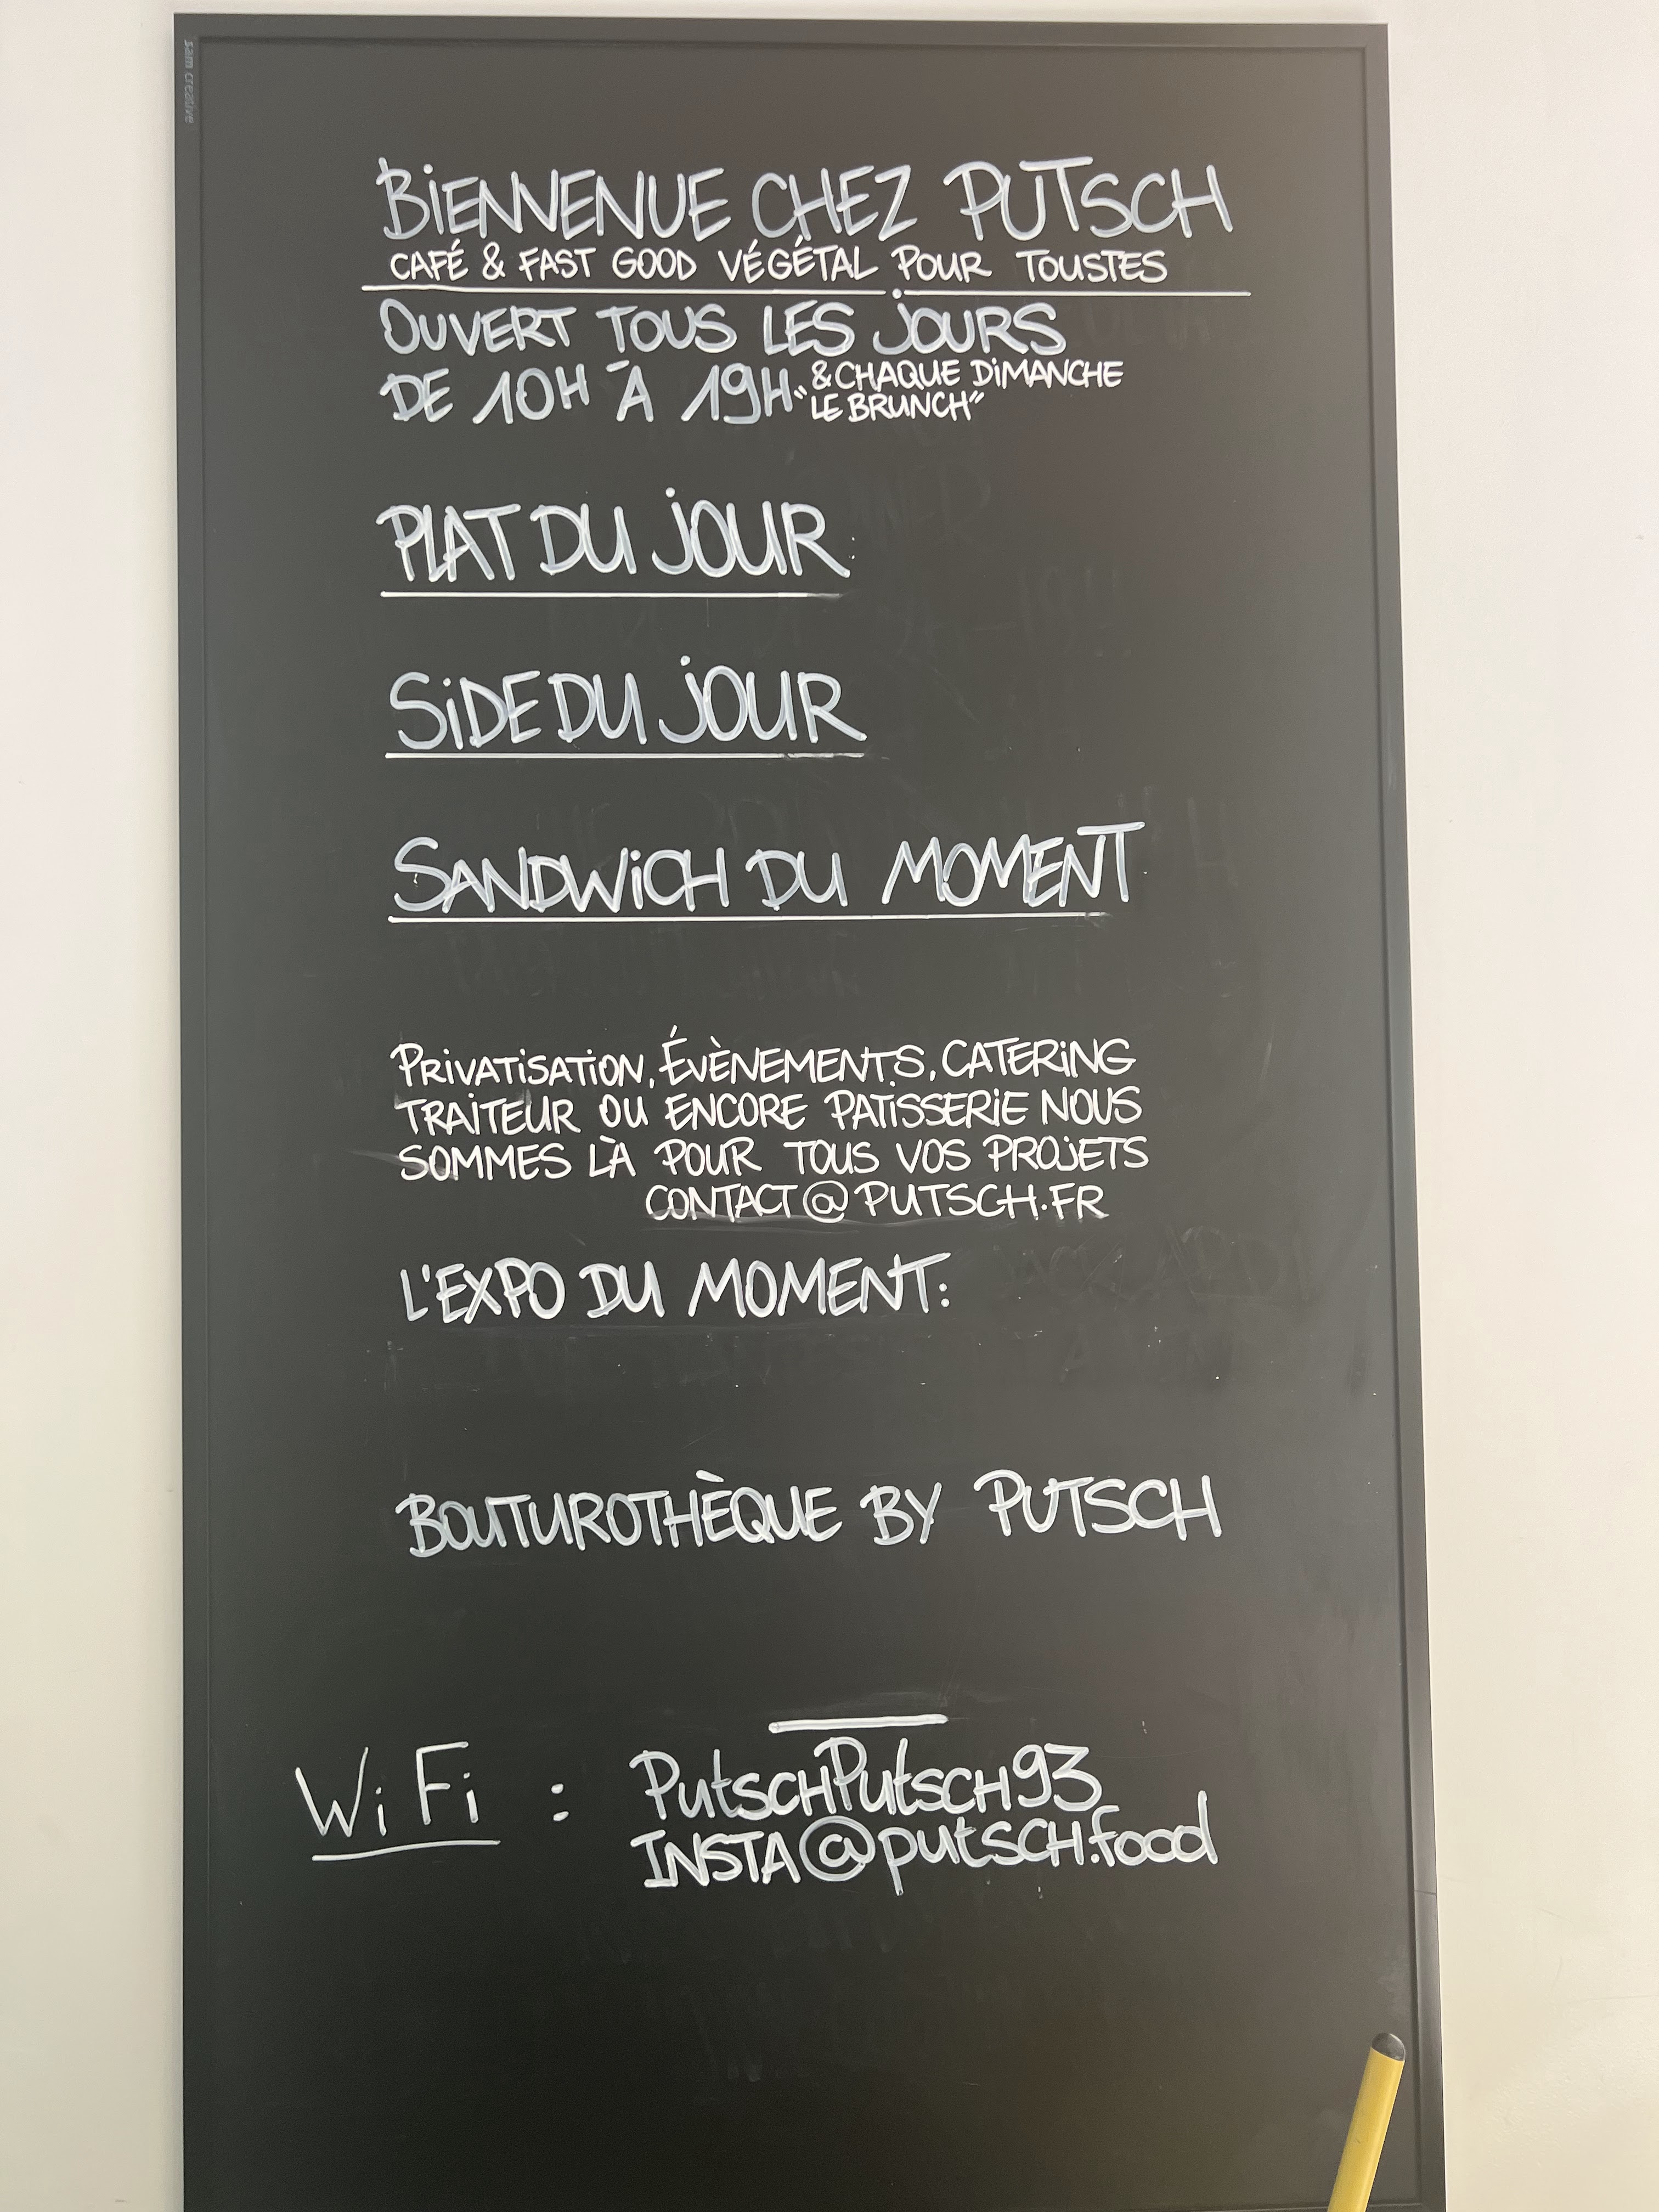 sam creative
BiENVENUE CHEZ PUTSCH
CAFÉ & FAST GOOD VÉGÉTAL POUR TOUSTES
OUVERT TOUS LES jOURS
DE 10H À 19H & CHAQUE DiMANCHE
"LE BRUNCH"
PLAT DU jOUR
SiDE DU jOUR
SANDWiCH DU MOMENT
PRiVATiSATiON, ÉVÈNEMENTS, CATERiNG
TRAiTEUR OU ENCORE PATiSSERiE NOUS
SOMMES LÀ POUR TOUS VOS PROjETS
CONTACT@PUTSCH.FR
L'EXPO DU MOMENT:
BOUTUROTHÈQUE BY PUTSCH
WiFi : PutscHPutscH93
INSTA@putscH.food